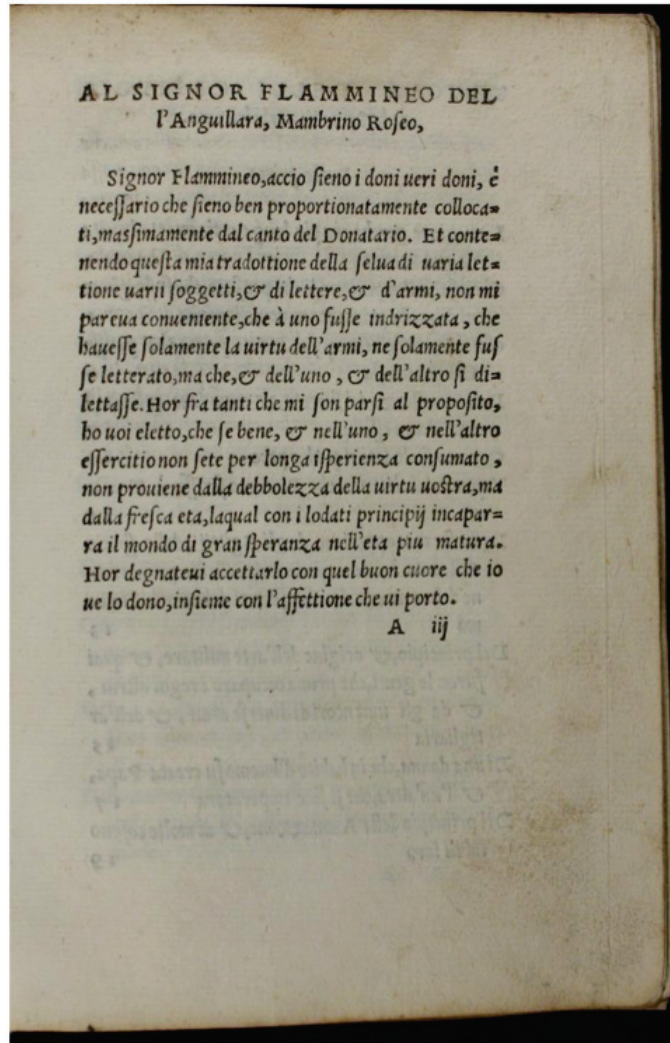 AL SIGNOR FLAMMINEO DEL
l'Anguillara, Mambrino Roseo,
Signor Flammineo,accio ſieno i doni ueri doni, é
neceſſario che ſieno ben proportionatamente colloca=
ti,maſſimamente dal canto del Donatario. Et conte=
nendo queſta mia tradottione della ſelua di uaria let=
tione uarii ſoggetti,& di lettere,& d'armi, non mi
pareua conueniente,che à uno fuſſe indrizzata, che
haueſſe ſolamente la uirtu dell'armi, ne ſolamente fuſ
ſe letterato,ma che,& dell'uno, & dell'altro ſi di=
lettaſſe. Hor fra tanti che mi ſon parſi al propoſito,
ho uoi eletto,che ſe bene, & nell'uno, & nell'altro
eſſercitio non ſete per longa iſperienza conſumato,
non prouiene dalla debbolezza della uirtu uoſtra,ma
dalla freſca eta,laqual con i lodati principij incapar=
ra il mondo di gran ſperanza nell'eta piu matura.
Hor degnateui accettarlo con quel buon cuore che io
ue lo dono,inſieme con l'affettione che ui porto.
A iij